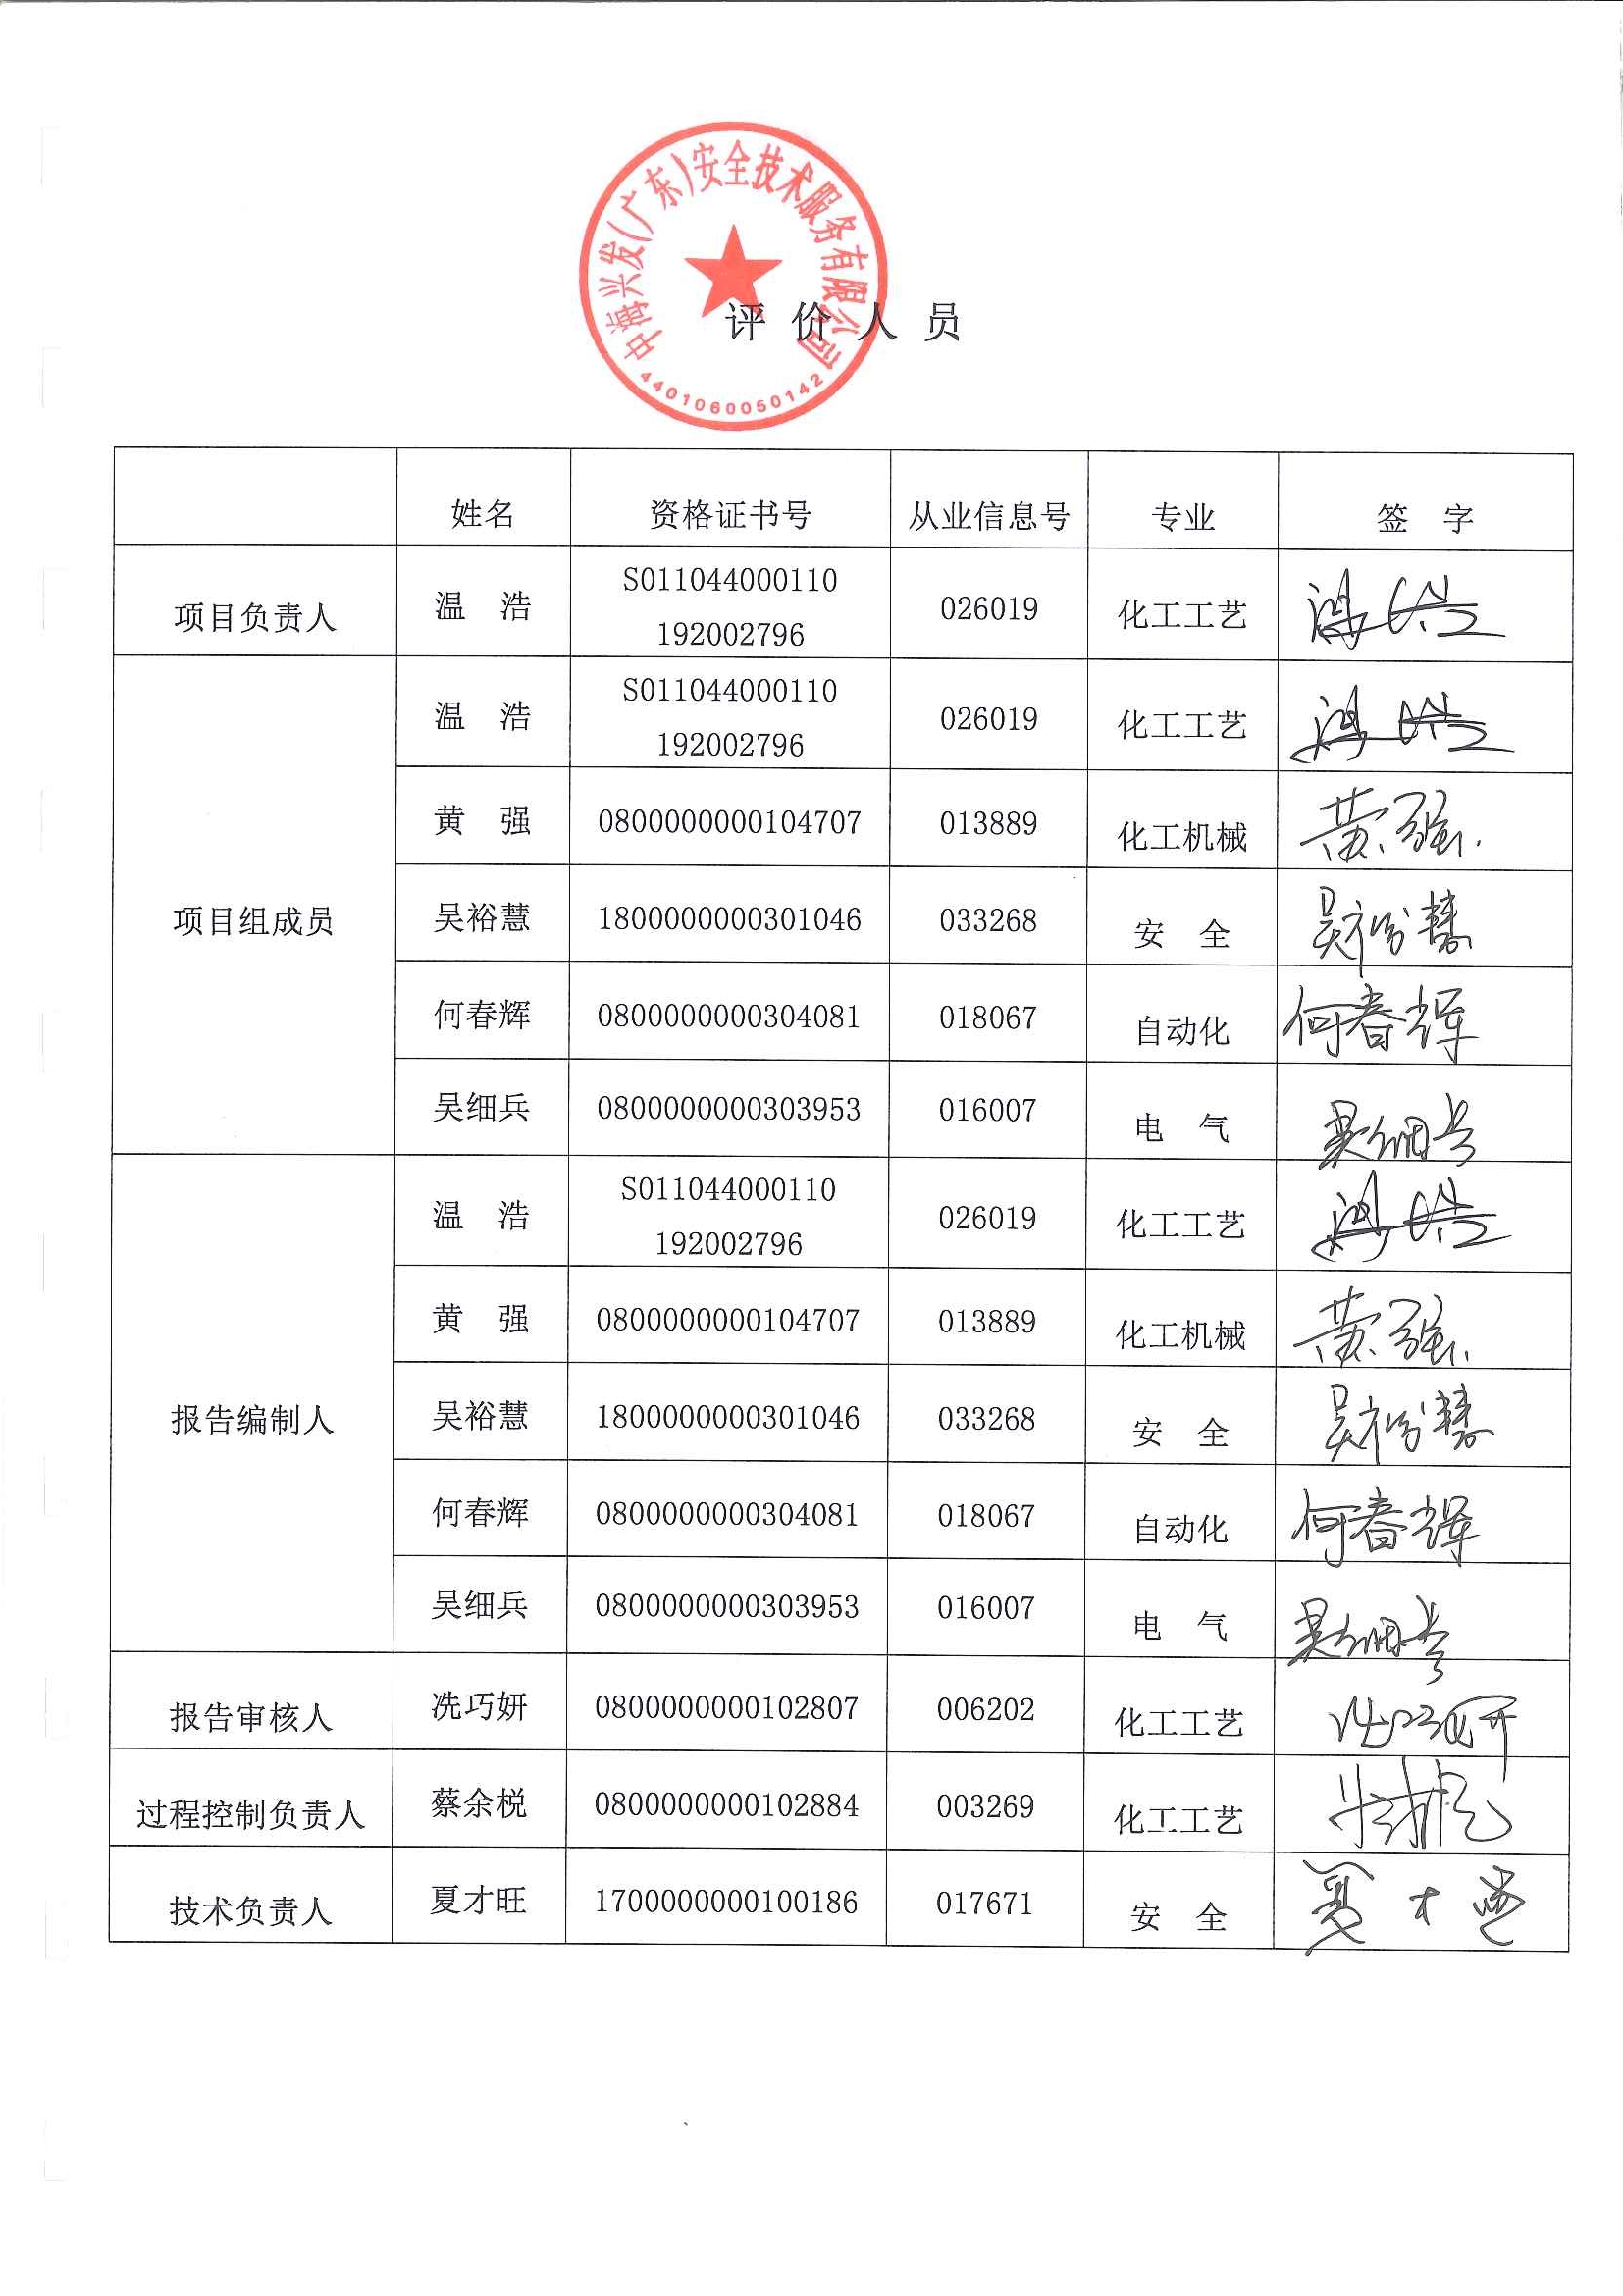 中海兴发(广东)安全技术服务有限公司
4401060050142
评价人员
姓名 资格证书号 从业信息号 专业 签 字
项目负责人 温 浩 S011044000110 192002796 026019 化工工艺 温浩
项目组成员 温 浩 S011044000110 192002796 026019 化工工艺 温浩
黄 强 0800000000104707 013889 化工机械 黄强
吴裕慧 1800000000301046 033268 安 全 吴裕慧
何春辉 0800000000304081 018067 自动化 何春辉
吴细兵 0800000000303953 016007 电 气 吴细兵
报告编制人 温 浩 S011044000110 192002796 026019 化工工艺 温浩
黄 强 0800000000104707 013889 化工机械 黄强
吴裕慧 1800000000301046 033268 安 全 吴裕慧
何春辉 0800000000304081 018067 自动化 何春辉
吴细兵 0800000000303953 016007 电 气 吴细兵
报告审核人 冼巧妍 0800000000102807 006202 化工工艺 冼巧妍
过程控制负责人 蔡余棁 0800000000102884 003269 化工工艺
技术负责人 夏才旺 1700000000100186 017671 安 全 夏才旺